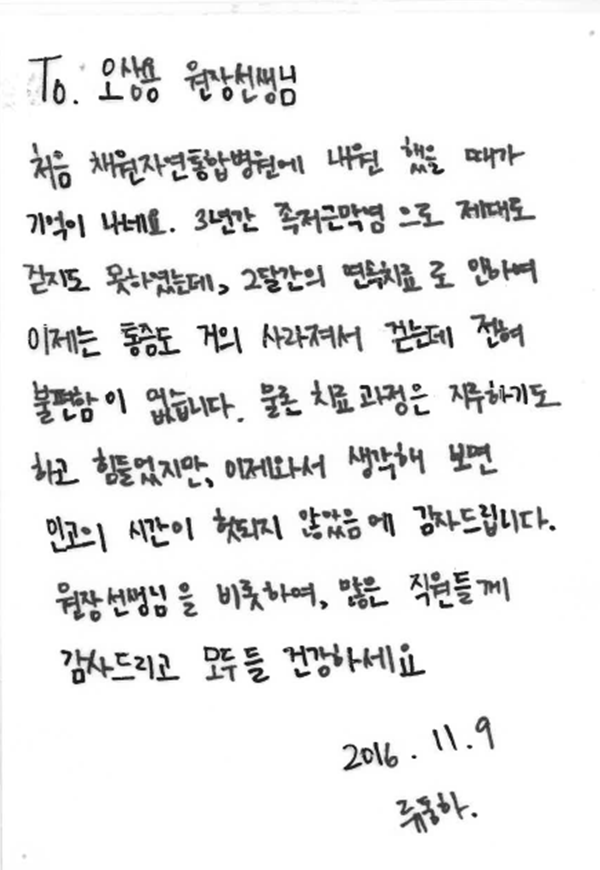 To. 오상용 원장선생님
처음 채원자연통합병원에 내원 했을 때가
기억이 나네요. 3년간 족저근막염 으로 제대도
걷지도 못하였는데, 2달간의 면독치료 로 인하여
이제는 통증도 거의 사라져서 걷는데 전혀
불편함이 없습니다. 물론 치료과정은 지루하기도
하고 힘들었지만, 이제와서 생각해 보면
인고의 시간이 헛되지 않았음에 감사드립니다.
원장선생님을 비롯하여, 많은 직원들께
감사드리고 모두들 건강하세요
2016. 11. 9
류동하.